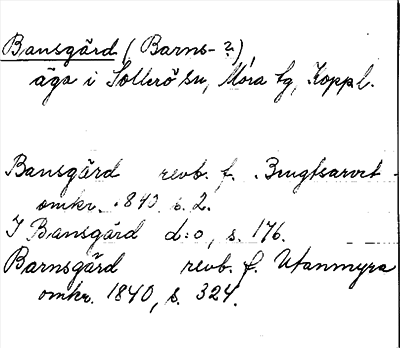 Bansgård (Barns-?)
äga i Sollerö sn, Mora tg, Koppl.
Bansgård revb. f. Bengtsarvet
omkr. 1840 s. 2.
I Bansgård d:o, s. 176.
Barnsgård revb. f. Utanmyra
omkr. 1840, s. 324.